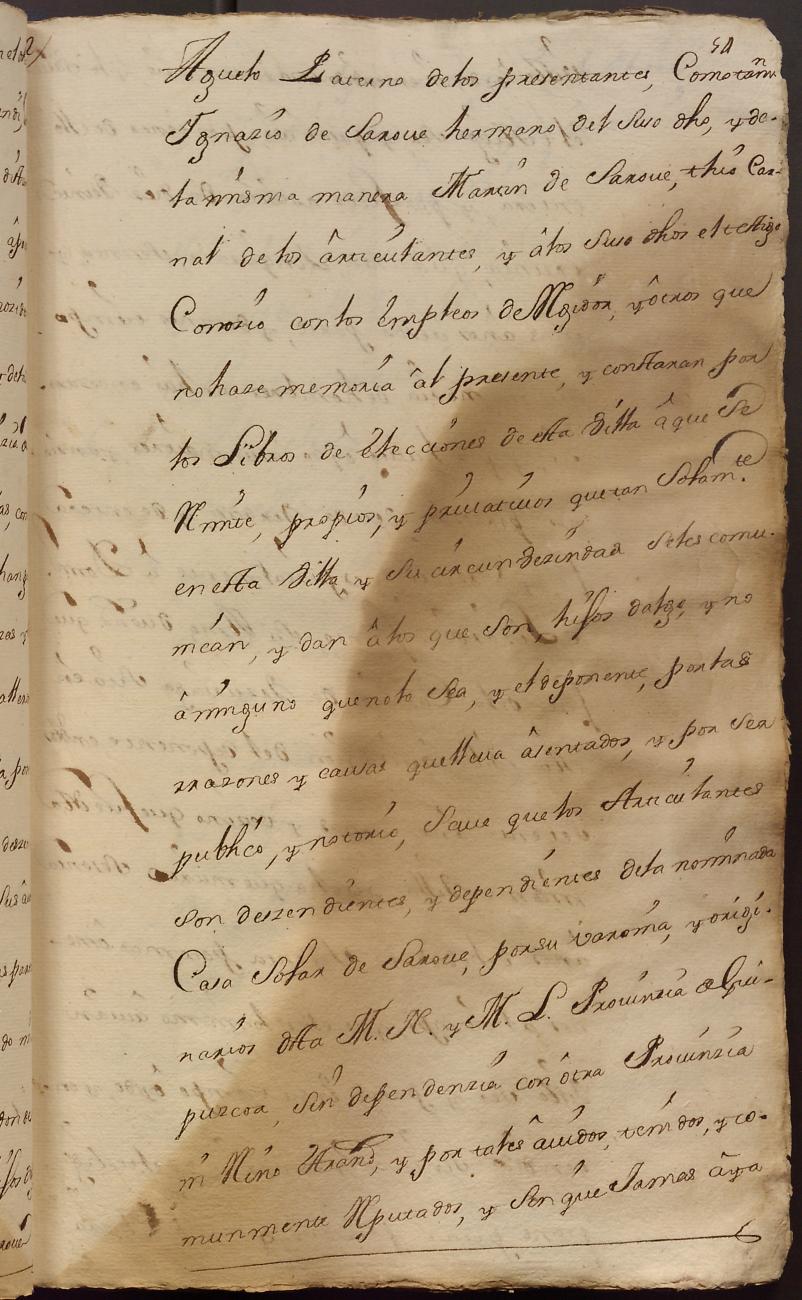 54
Aguelo Paterno delos presentantes, Como tamn
Ygnazio de Saroue hermano del suso dho, y de
la misma manera Martin de Saroue, thio Car-
nal delos ârticulantes, y âlos suso dhos el testigo
Conozio con los Empleos de Rexidor, y ôtros que
no haze memoria âl presente, y constaran por
los Libros de Elecciones de esta Villa âque se
Rmite, propios, y priuatiuos que tan Solamte.
en esta Villa y su circunvezindad seles comu-
nican, y dan âlos que son, hijos dalgo, y no
âninguno que nolo sea, y el deponente, por las
rrazones y causas que lleua âsentados, y por ser
publico, y notorio, Saue que los Articulantes
son deszendientes, y dependientes dela nominada
Casa Solar de Saroue, por su varonia, y origi-
narios dsta M. N. y M. L. Prouinzia de Gui-
puzcoa, sin dependenzia con ôtra Prouinzia
ni Rino estraño, y por tales âuidos, tenidos, y co-
munmente Rputados, y sin que Jamas âya